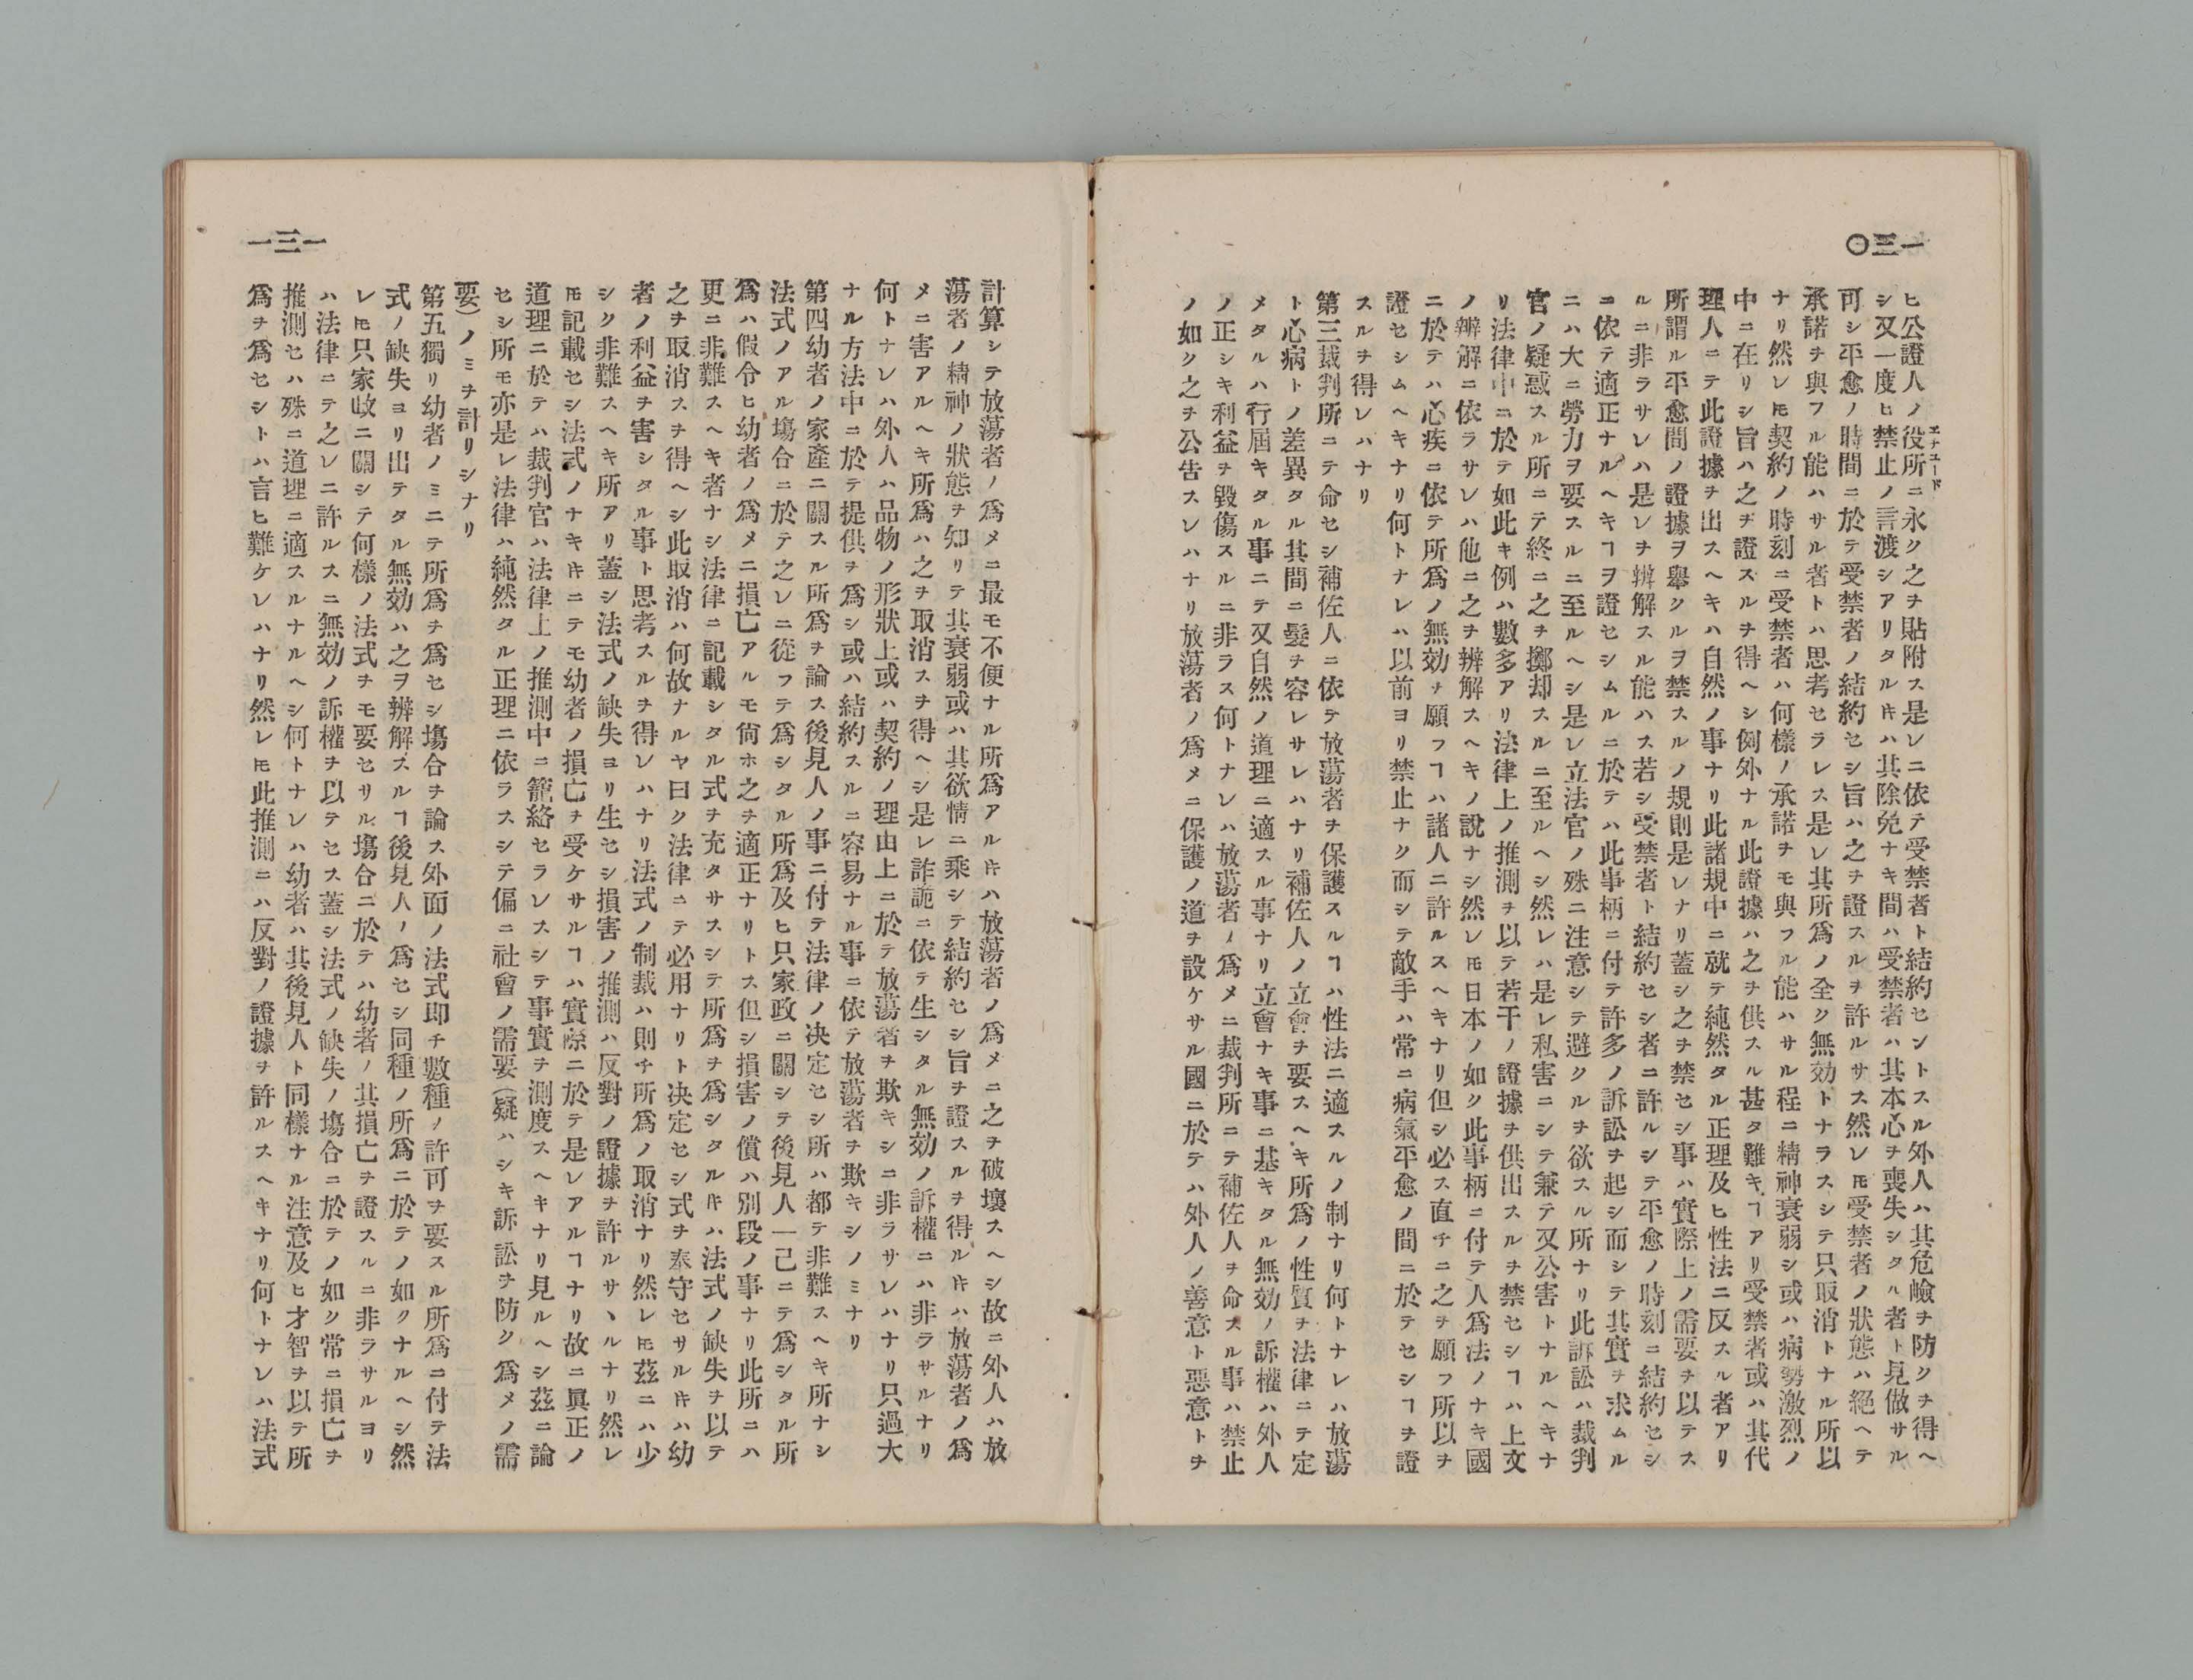 一三〇
ヒ公證人ノ役所ニ永ク之ヲ貼附ス是レニ依テ受禁者ト結約セントスル外人ハ其危嶮ヲ防クヲ得ヘ
エチユード
シ又一度ヒ禁止ノ言渡シアリタル𪜈ハ其除免ナキ間ハ受禁者ハ其本心ヲ喪失シタル者ト見做サル
可シ平愈ノ時間ニ於テ受禁者ノ結約セシ旨ハ之ヲ證スルヲ許ルサス然レ𪜈受禁者ノ狀態ハ絕ヘテ
承諾ヲ與フル能ハサル者トハ思考セラレス是レ其所爲ノ全ク無効トナラスシテ只取消トナル所以
ナリ然レ𪜈契約ノ時刻ニ受禁者ハ何樣ノ承諾ヲモ與フル能ハサル程ニ精神衰弱シ或ハ病勢激烈ノ
中ニ在リシ旨ハ之ヲ證スルヲ得ヘシ例外ナル此證據ハ之ヲ供スル甚タ難キヿアリ受禁者或ハ其代
理人ニテ此證據ヲ出スヘキハ自然ノ事ナリ此諸規中ニ就テ純然タル正理及ヒ性法ニ反スル者アリ
所謂ル平愈間ノ證據ヲ擧クルヲ禁スルノ規則是レナリ蓋シ之ヲ禁セシ事ハ實際上ノ需要ヲ以テス
ルニ非ラサレハ是レヲ辨解スル能ハス若シ受禁者ト結約セシ者ニ許ルシテ平愈ノ時刻ニ結約セシ
ニ依テ適正ナルヘキヿヲ證セシムルニ於テハ此事柄ニ付テ許多ノ訴訟ヲ起シ而シテ其實ヲ求ムル
ニハ大ニ勞力ヲ要スルニ至ルヘシ是レ立法官ノ殊ニ注意シテ避クルヲ欲スル所ナリ此訴訟ハ裁判
官ノ疑惑スル所ニテ終ニ之ヲ擲却スルニ至ルヘシ然レハ是レ私害ニシテ兼テ又公害トナルヘキナ
リ法律中ニ於テ如此キ例ハ數多アリ法律上ノ推測ヲ以テ若干ノ證據ヲ供出スルヲ禁セシヿハ上文
ノ辨解ニ依ラサレハ他ニ之ヲ辨解スヘキノ說ナシ然レ𪜈日本ノ如ク此事柄ニ付テ人爲法ノナキ國
ニ於テハ心疾ニ依テ所爲ノ無効ヲ願フヿハ諸人ニ許ルスヘキナリ但シ必ス直チニ之ヲ願フ所以ヲ
證セシムヘキナリ何トナレハ以前ヨリ禁止ナク而シテ敵手ハ常ニ病氣平愈ノ間ニ於テセシヿヲ證
スルヲ得レハナリ
第三裁判所ニテ命セシ補佐人ニ依テ放蕩者ヲ保護スルヿハ性法ニ適スルノ制ナリ何トナレハ放蕩
ト心病トノ差異タル其間ニ髮ヲ容レサレハナリ補佐人ノ立會ヲ要スヘキ所爲ノ性質ヲ法律ニテ定
メタルハ行屆キタル事ニテ又自然ノ道理ニ適スル事ナリ立會ナキ事ニ基キタル無効ノ訴權ハ外人
ノ正シキ利益ヲ毀傷スルニ非ラス何トナレハ放蕩者ノ爲メニ裁判所ニテ補佐人ヲ命スル事ハ禁止
ノ如ク之ヲ公告スレハナリ放蕩者ノ爲メニ保護ノ道ヲ設ケサル國ニ於テハ外人ノ善意ト惡意トヲ
一三一
計算シテ放蕩者ノ爲メニ最モ不便ナル所爲アル𪜈ハ放蕩者ノ爲メニ之ヲ破壞スヘシ故ニ外人ハ放
蕩者ノ精神ノ狀態ヲ知リテ其衰弱或ハ其欲情ニ乘シテ結約セシ旨ヲ證スルヲ得ル𪜈ハ放蕩者ノ爲
メニ害アルヘキ所爲ハ之ヲ取消スヲ得ヘシ是レ詐詭ニ依テ生シタル無効ノ訴權ニハ非ラサルナリ
何トナレハ外人ハ品物ノ形狀上或ハ契約ノ理由上ニ於テ放蕩者ヲ欺キシニ非ラサレハナリ只過大
ナル方法中ニ於テ提供ヲ爲シ或ハ結約スルニ容易ナル事ニ依テ放蕩者ヲ欺キシノミナリ
第四幼者ノ家產ニ關スル所爲ヲ論ス後見人ノ事ニ付テ法律ノ決定セシ所ハ都テ非難スヘキ所ナシ
法式ノアル塲合ニ於テ之レニ從フテ爲シタル所爲及ヒ只家政ニ關シテ後見人一己ニテ爲シタル所
爲ハ假令ヒ幼者ノ爲メニ損亡アルモ尙ホ之ヲ適正ナリトス但シ損害ノ償ハ別段ノ事ナリ此所ニハ
更ニ非難スヘキ者ナシ法律ニ記載シタル式ヲ充タサスシテ所爲ヲ爲シタル𪜈ハ法式ノ缺失ヲ以テ
之ヲ取消スヲ得ヘシ此取消ハ何故ナルヤ曰ク法律ニテ必用ナリト決定セシ式ヲ奉守セサル𪜈ハ幼
者ノ利益ヲ害シタル事ト思考スルヲ得レハナリ法式ノ制裁ハ則チ所爲ノ取消ナリ然レ𪜈茲ニハ少
シク非難スヘキ所アリ蓋シ法式ノ缺失ヨリ生セシ損害ノ推測ハ反對ノ證據ヲ許ルサヽルナリ然レ
𪜈記載セシ法式ノナキ𪜈ニテモ幼者ノ損亡ヲ受ケサルヿハ實際ニ於テ是レアルヿナリ故ニ眞正ノ
道理ニ於テハ裁判官ハ法律上ノ推測中ニ籠絡セラレスシテ事實ヲ測度スヘキナリ見ルヘシ茲ニ論
セシ所モ亦是レ法律ハ純然タル正理ニ依ラスシテ偏ニ社會ノ需要(疑ハシキ訴訟ヲ防ク爲メノ需
要)ノミヲ計リシナリ
第五獨リ幼者ノミニテ所爲ヲ爲セシ塲合ヲ論ス外面ノ法式即チ數種ノ許可ヲ要スル所爲ニ付テ法
式ノ缺失ヨリ出テタル無効ハ之ヲ辨解スルヿ後見人ノ爲セシ同種ノ所爲ニ於テノ如クナルヘシ然
レ𪜈只家政ニ關シテ何樣ノ法式ヲモ要セサル塲合ニ於テハ幼者ノ其損亡ヲ證スルニ非ラサルヨリ
ハ法律ニテ之レニ許ルスニ無効ノ訴權ヲ以テセス蓋シ法式ノ缺失ノ塲合ニ於テノ如ク常ニ損亡ヲ
推測セハ殊ニ道理ニ適スルナルヘシ何トナレハ幼者ハ其後見人ト同樣ナル注意及ヒ才智ヲ以テ所
爲ヲ爲セシトハ言ヒ難ケレハナリ然レ𪜈此推測ニハ反對ノ證據ヲ許ルスヘキナリ何トナレハ法式